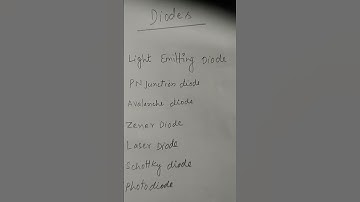 Diodes
Light Emitting Diode
PN Junction diode
Avalanche diode
Zenar Diode
Laser Diode
Schottky diode
Photodiode